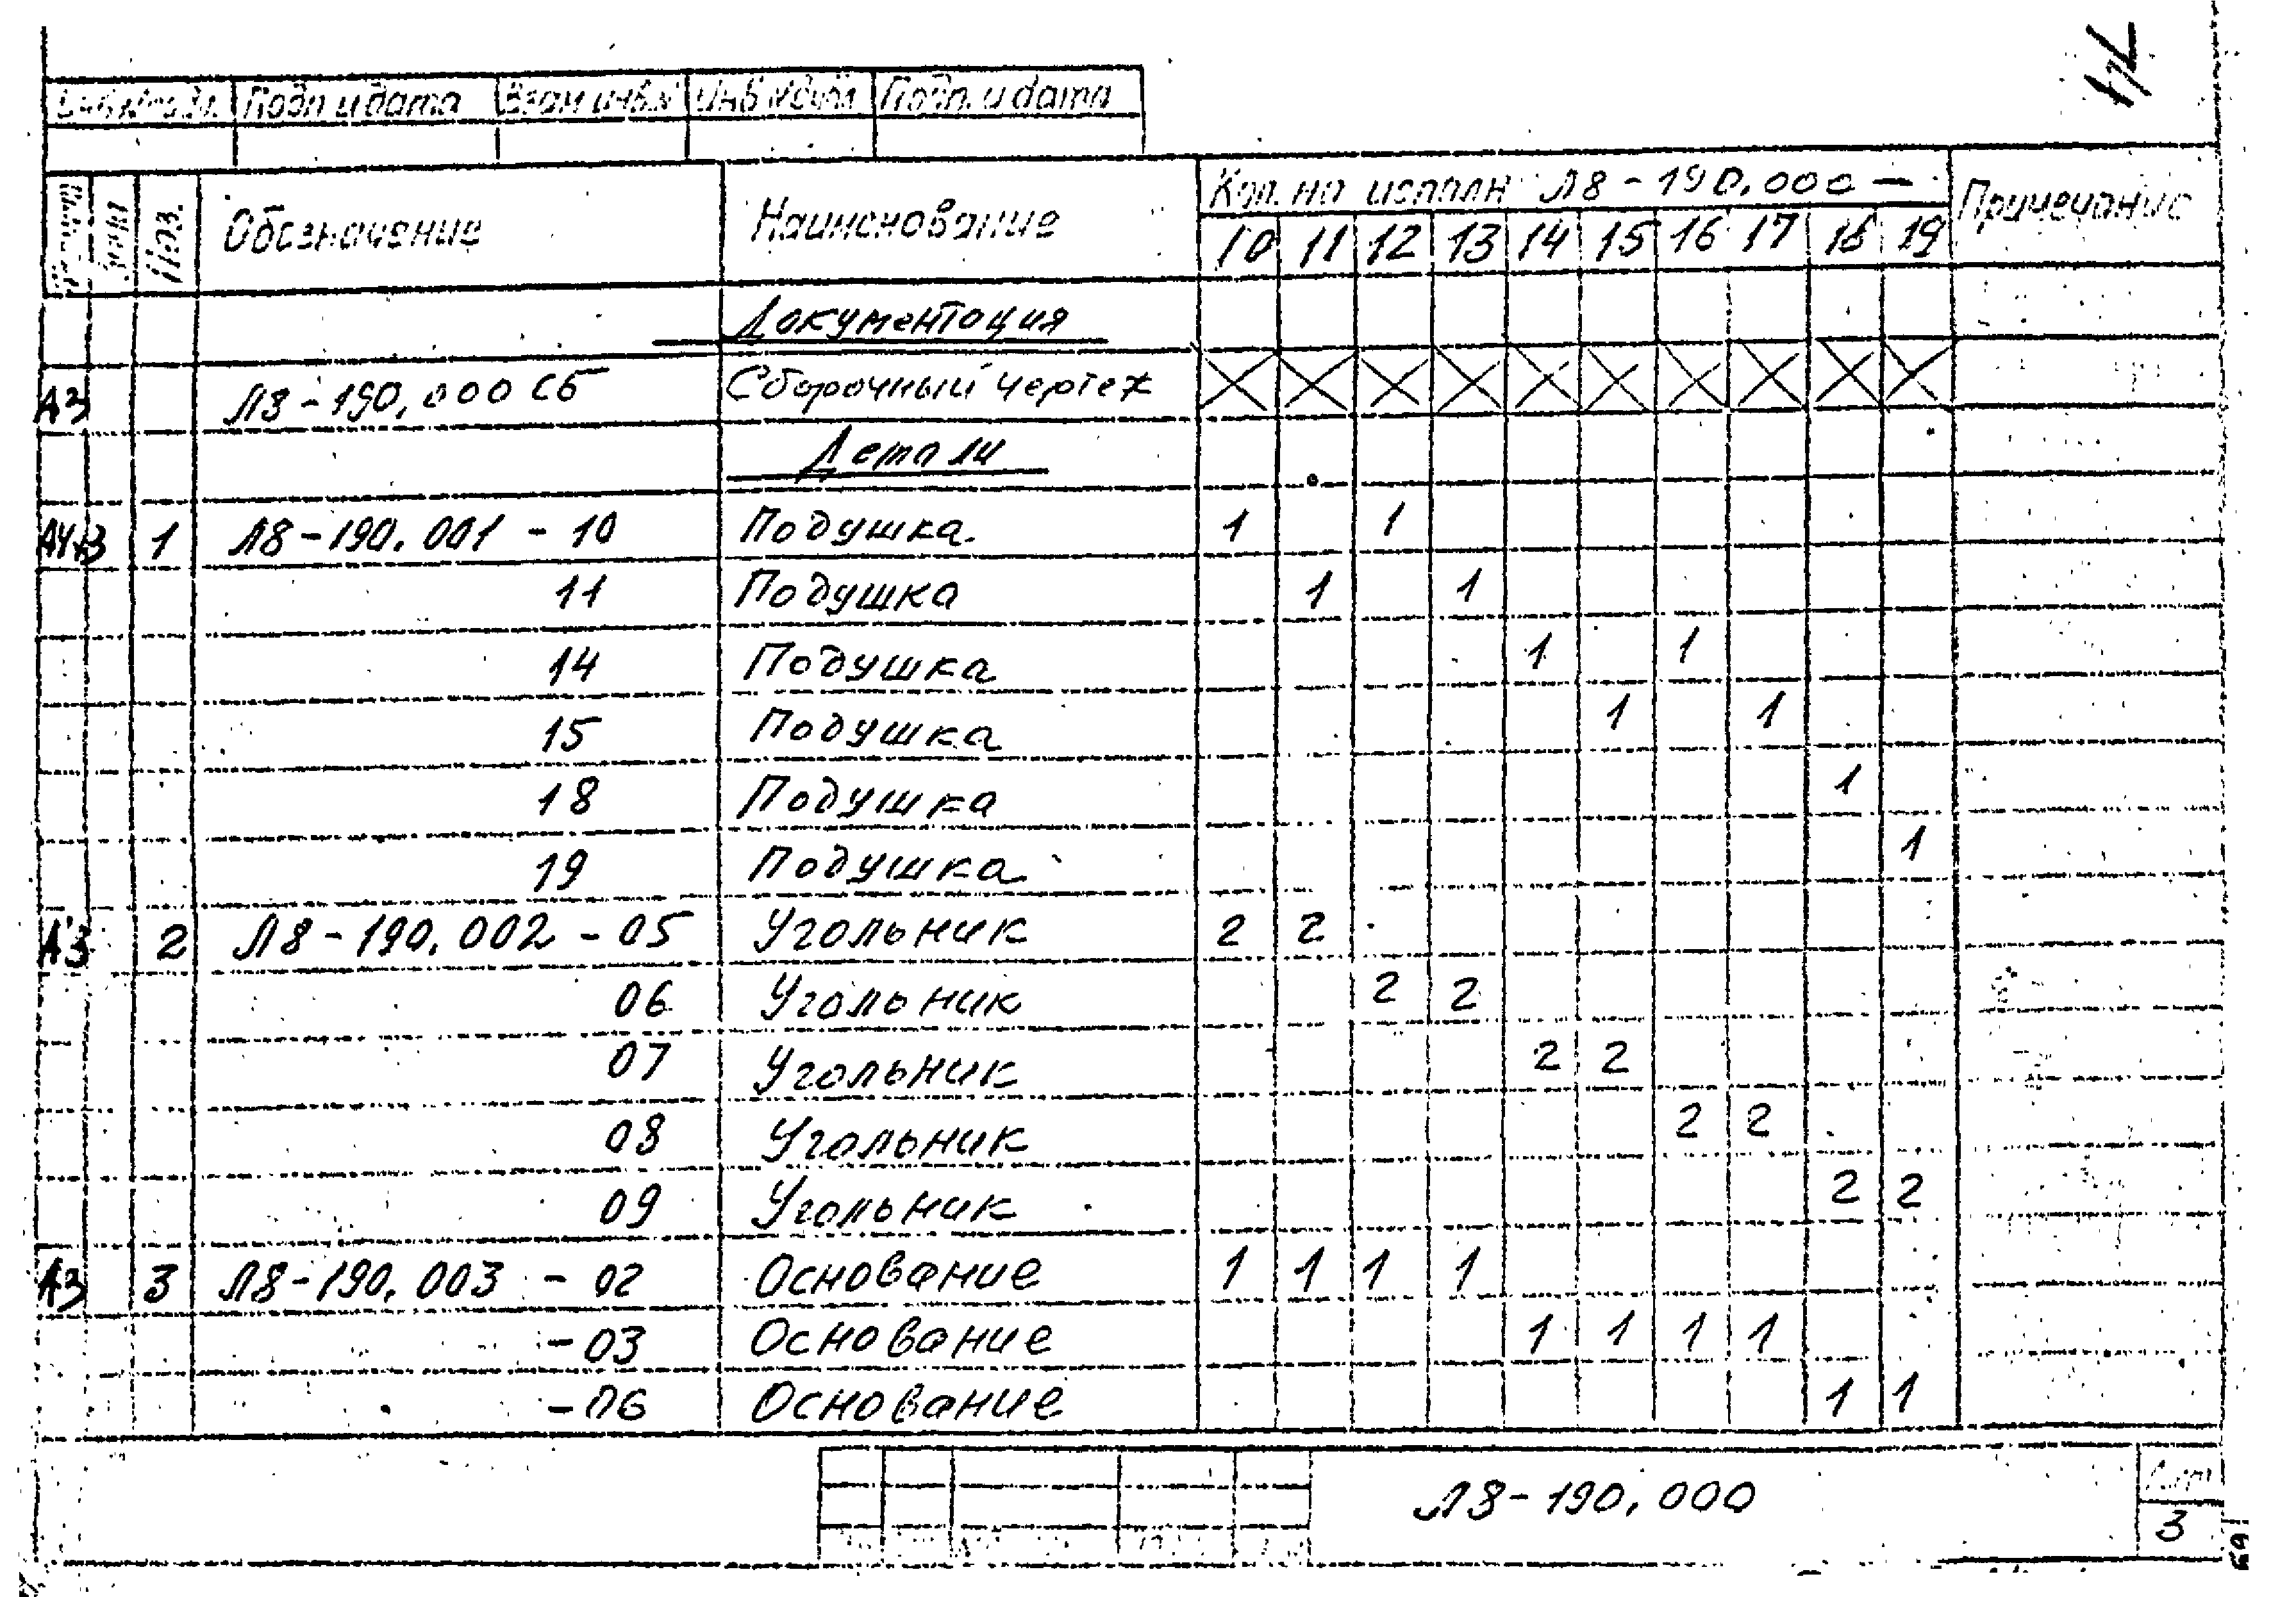 Подп и дата Взам инв.№ Инв № дубл Подп. и дата
Поз. Обозначение Наименование Кол. на исполн Л8-190.000 — Примечание
10 11 12 13 14 15 16 17 18 19
Документация
А3 Л8-190.000 СБ Сборочный чертеж
Детали
А4х3 1 Л8-190.001 - 10 Подушка 1 1
11 Подушка 1 1
14 Подушка 1 1
15 Подушка 1 1
18 Подушка 1
19 Подушка 1
А3 2 Л8-190.002 - 05 Угольник 2 2
06 Угольник 2 2
07 Угольник 2 2
08 Угольник 2 2
09 Угольник 2 2
А3 3 Л8-190.003 - 02 Основание 1 1 1 1
-03 Основание 1 1 1 1
-06 Основание 1 1
Л8-190.000
Лист
3
69